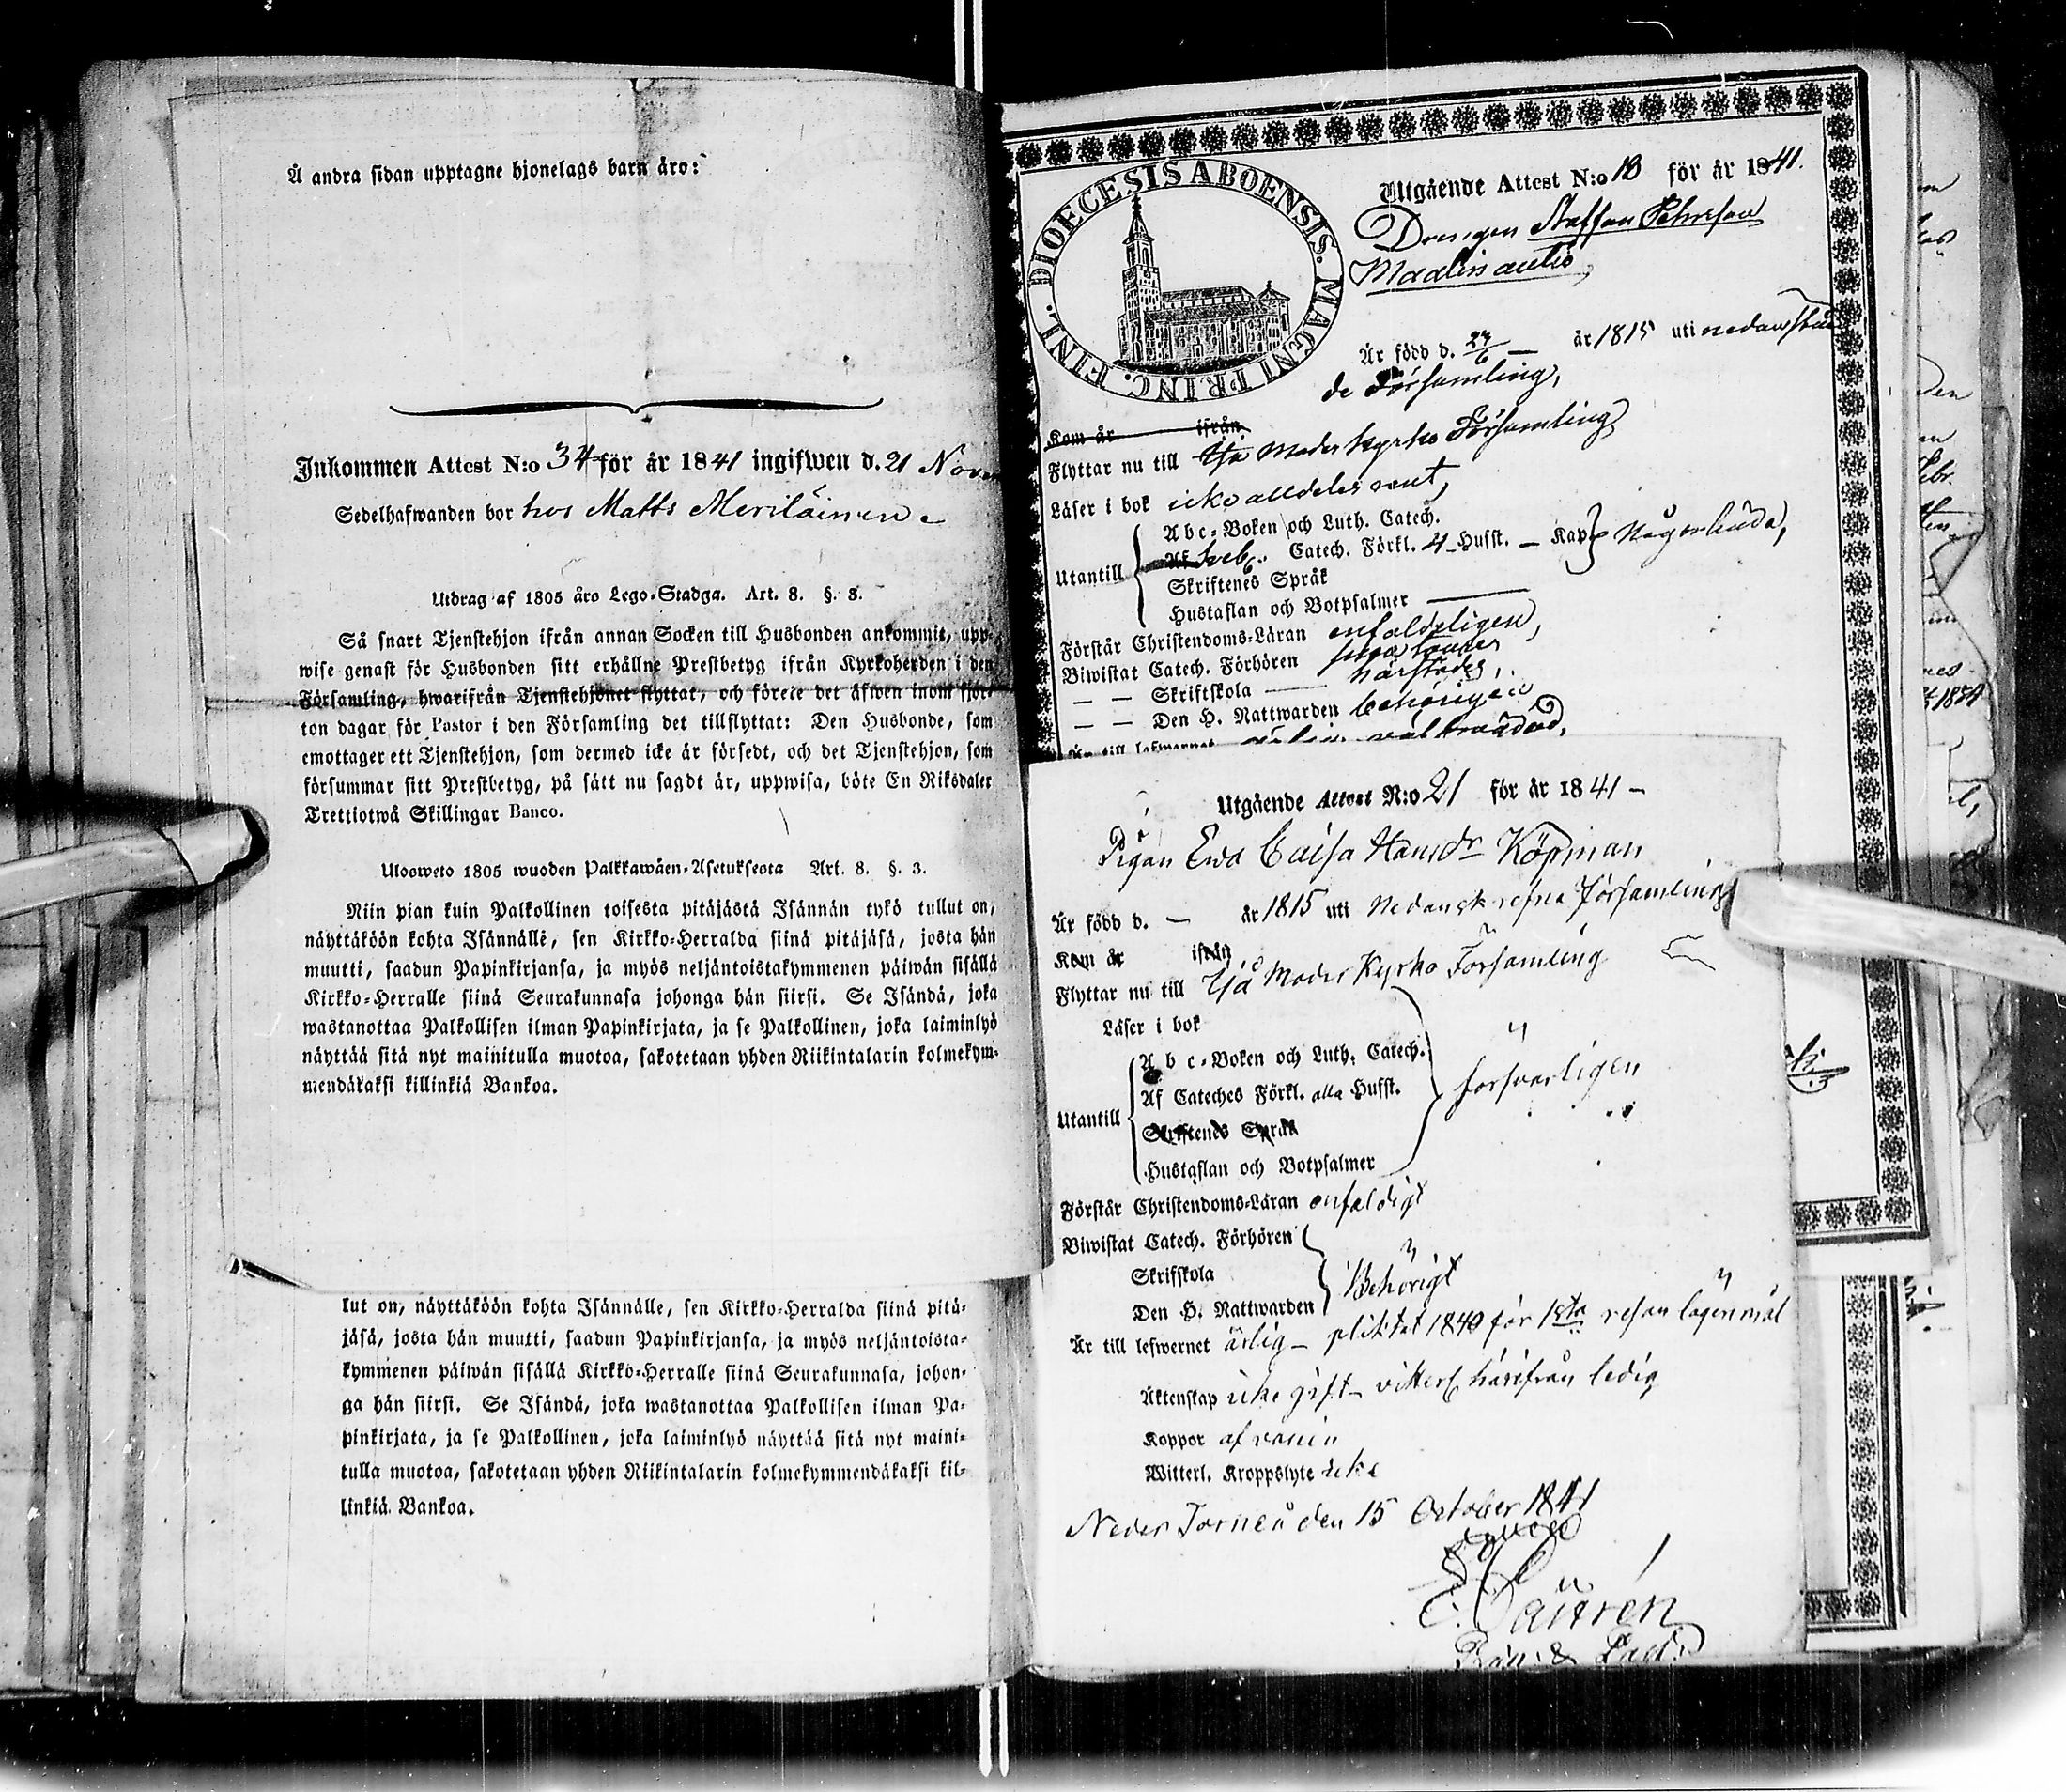 Å andra sidan upptagne hjonelags barn äro:
Inkommen Attest N:o 34 för år 1841 ingifwen d. 21 Nov
Sedelhafwanden bor hos Matts Meriläinen
Utdrag af 1805 års Lego-Stadga. Art. 8. §. 3.
Så snart Tjenstehjon ifrån annan Socken till Husbonden ankommit, upp-
wise genast för Husbonden sitt erhållne Prestbetyg ifrån Kyrkoherden i den
Församling, hwarifrån Tjenstehjonet flyttat, och förete det äfwen inom fjor-
ton dagar för Pastor i den Församling det tillflyttat: Den Husbonde, som
emottager ett Tjenstehjon, som dermed icke är försedt, och det Tjenstehjon, som
försummar sitt Prestbetyg, på sätt nu sagdt är, uppwisa, böte En Riksdaler
Trettiotwå Skillingar Banco.
Ulosweto 1805 wuoden Palkkawäen-Asetuksesta Art. 8. §. 3.
Niin pian kuin Palkollinen toisesta pitäjästä Isännän tykö tullut on,
näyttäköön kohta Isännälle, sen Kirkko-Herralda siinä pitäjäsä, josta hän
muutti, saadun Papinkirjansa, ja myös neljäntoistakymmenen päiwän sisällä
Kirkko-Herralle siinä Seurakunnasa johonga hän siirsi. Se Isändä, joka
wastanottaa Palkollisen ilman Papinkirjata, ja se Palkollinen, joka laiminlyö
näyttää sitä nyt mainitulla muotoa, sakotetaan yhden Riikintalarin kolmekym-
mendäkaksi killinkiä Bankoa.
lut on, näyttäköön kohta Isännälle, sen Kirkko-Herralda siinä pitä-
jäsä, josta hän muutti, saadun Papinkirjansa, ja myös neljäntoista-
kymmenen päiwän sisällä Kirkko-Herralle siinä Seurakunnasa, johon-
ga hän siirsi. Se Isändä, joka wastanottaa Palkollisen ilman Pa-
pinkirjata, ja se Palkollinen, joka laiminlyö näyttää sitä nyt maini-
tulla muotoa, sakotetaan yhden Riikintalarin kolmekymmendäkaksi kil-
linkiä Bankoa.
DIOECESIS ABOENSIS. MAGNI PRINC. FINL.
Utgående Attest N:o 18 för år 1841.
Drengen Staffan Pehrsson
Maalisantio,
Är född d. 27/6 — år 1815 uti nedanstå
de Församling,
Kom år ifrån
Flyttar nu till Ijå Moderkyrko Församling
Läser i bok icke alldeles rent,
Abc-Boken och Luth. Catech.
Af Sveb. Catech. Förkl. 4 Hufst. — Kap
Någorlunda,
Utantill
Skriftenes Språk
Hustaflan och Botpsalmer
Förstår Christendoms-Läran enfaldeligen,
Biwistat Catech. Förhören
— — Skriftskola — härstädes,
— — Den H. Nattwarden behörigen
Är till lefwernet wälfräjdad,
Utgående Attest N:o 21 för år 1841 —
Pigan Ewa Caisa Hansdr Köpman
Är född d. — år 1815 uti Nedanskrefna Församling
Kom år ifrån
Flyttar nu till Ijå Moder Kyrko Församling
Läser i bok
A b c-Boken och Luth. Catech.
Af Cateches Förkl. alla Hufst.
försvarligen
Utantill
Skriftenes Språk
Hustaflan och Botpsalmer
Förstår Christendoms-Läran enfaldigt
Biwistat Catech. Förhören
Skrifskola
Behörigt
Den H. Nattwarden
Är till lefwernet ärlig — pliktat 1840 för 1sta resan lägersmål
Äktenskap icke gift — vitterl. härifrån ledig
Koppor af vaccin
Witterl. Kroppslyte icke
Neder Torneå den 15 October 1841